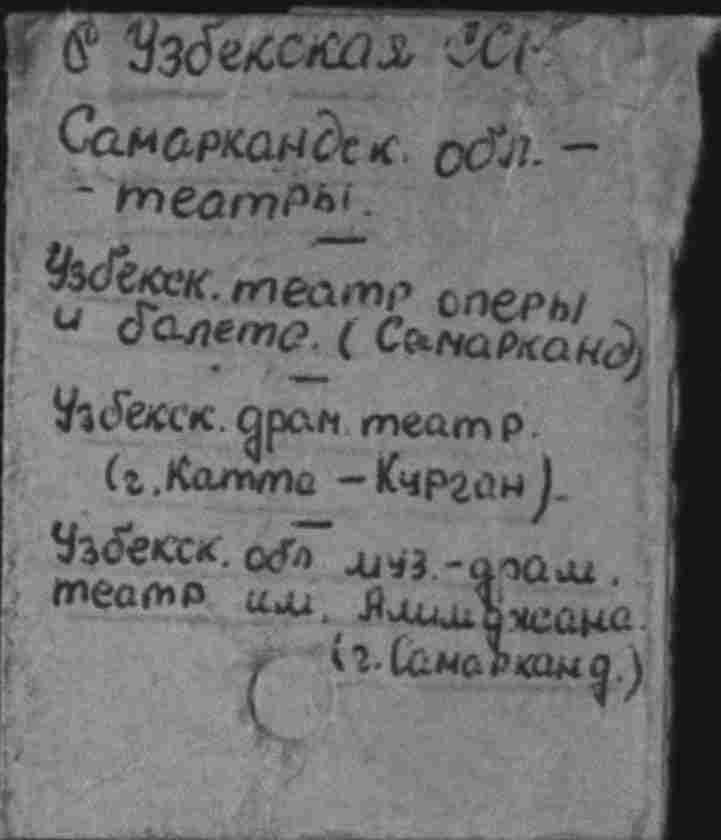 Узбекская ССР
Самаркандск. обл. –
- театры.
Узбекск. театр оперы
и балета. (Самарканд)
Узбекск. драм. театр.
(г. Катта – Курган).
Узбекск. обл муз.-драм.
театр им. Алимджана.
(г. Самарканд.)